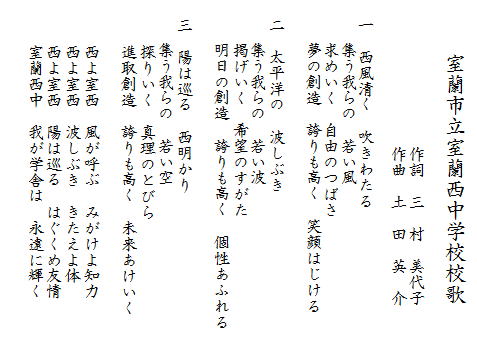 室蘭市立室蘭西中学校校歌
作詞　三　村　美代子
作曲　土　田　英　介
一　西風清く　吹きわたる
集う我らの　若い風
求めいく　自由のつばさ
夢の創造　誇りも高く　笑顔はじける
二　太平洋の　波しぶき
集う我らの　若い波
掲げいく　希望のすがた
明日の創造　誇りも高く　個性あふれる
三　陽は巡る　西明かり
集う我らの　若い空
探りいく　真理のとびら
進取創造　誇りも高く　未来あけいく
西よ室西　風が呼ぶ　みがけよ知力
西よ室西　波しぶき　きたえよ体
西よ室西　陽は巡る　はぐくめ友情
室蘭西中　我が学舎は　永遠に輝く